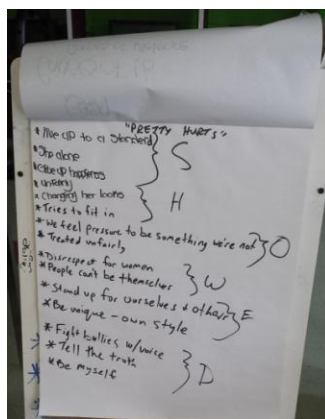 "PRETTY HURTS"
* live up to a standard
* Stop alone
* Give up happiness
* unfairly
* Changing her looks
S
H
* Tries to fit in
* We feel pressure to be something we're not
* Treated unfairly
O
* Disrespect for women
* People can't be themselves
W
* Stand up for ourselves + others
* Be unique - own style
E
* Fight bullies w/ voice
* Tell the truth
* Be myself
D